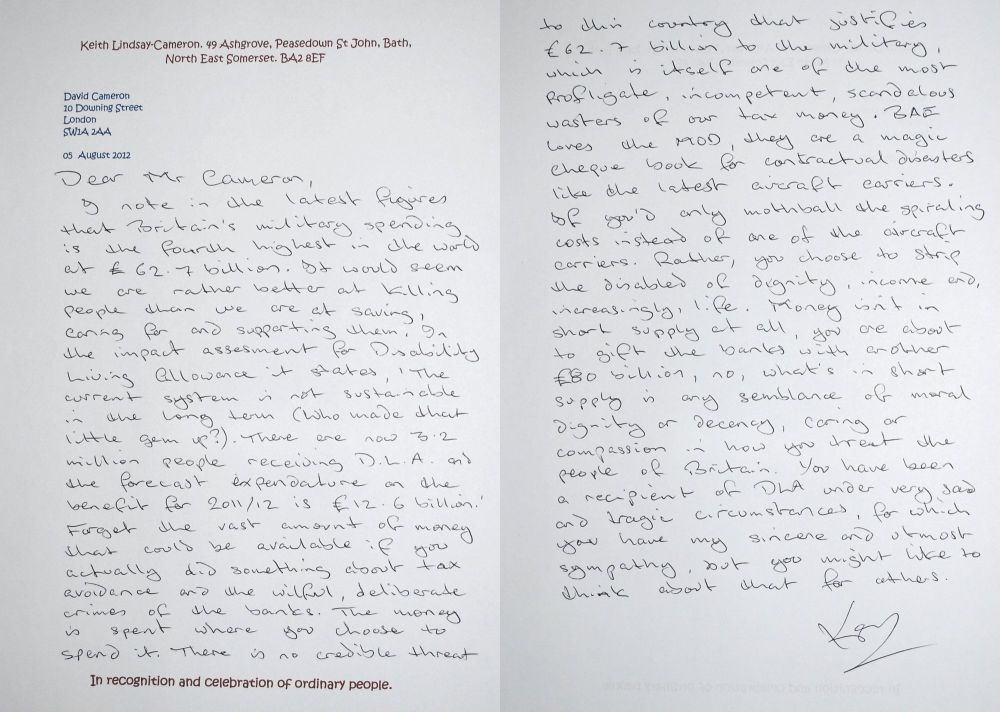 Keith Lindsay-Cameron. 49 Ashgrove, Peasedown St John, Bath,
North East Somerset. BA2 8EF
David Cameron
10 Downing Street
London
SW1A 2AA
05 August 2012
Dear Mr Cameron,
I note in the latest figures
that Britain's military spending
is the fourth highest in the world
at £62.7 billion. It would seem
we are rather better at killing
people than we are at saving,
caring for and supporting them. In
the impact assesment for Disability
Living Allowance it states, 'The
current system is not sustainable
in the long term (Who made that
little gem up?). There are now 3.2
million people receiving D.L.A. and
the forecast expendature on the
benefit for 2011/12 is £12.6 billion.'
Forget the vast amount of money
that could be available if you
actually did something about tax
avoidance and the wilful, deliberate
crimes of the banks. The money
is spent where you choose to
spend it. There is no credible threat
In recognition and celebration of ordinary people.
to this country that justifies
£62.7 billion to the military,
which is itself one of the most
profligate, incompetent, scandalous
wasters of our tax money. BAE
loves the MOD, they are a magic
cheque book for contractual disasters
like the latest aircraft carriers.
If you'd only mothball the spiraling
costs instead of one of the aircraft
carriers. Rather, you choose to strip
the disabled of dignity, income and,
increasingly, life. Money isn't in
short supply at all, you are about
to gift the banks with another
£80 billion, no, what's in short
supply is any semblance of moral
dignity or decency, caring or
compassion in how you treat the
people of Britain. You have been
a recipient of DLA under very sad
and tragic circumstances, for which
you have my sincere and utmost
sympathy, but you might like to
think about that for others.